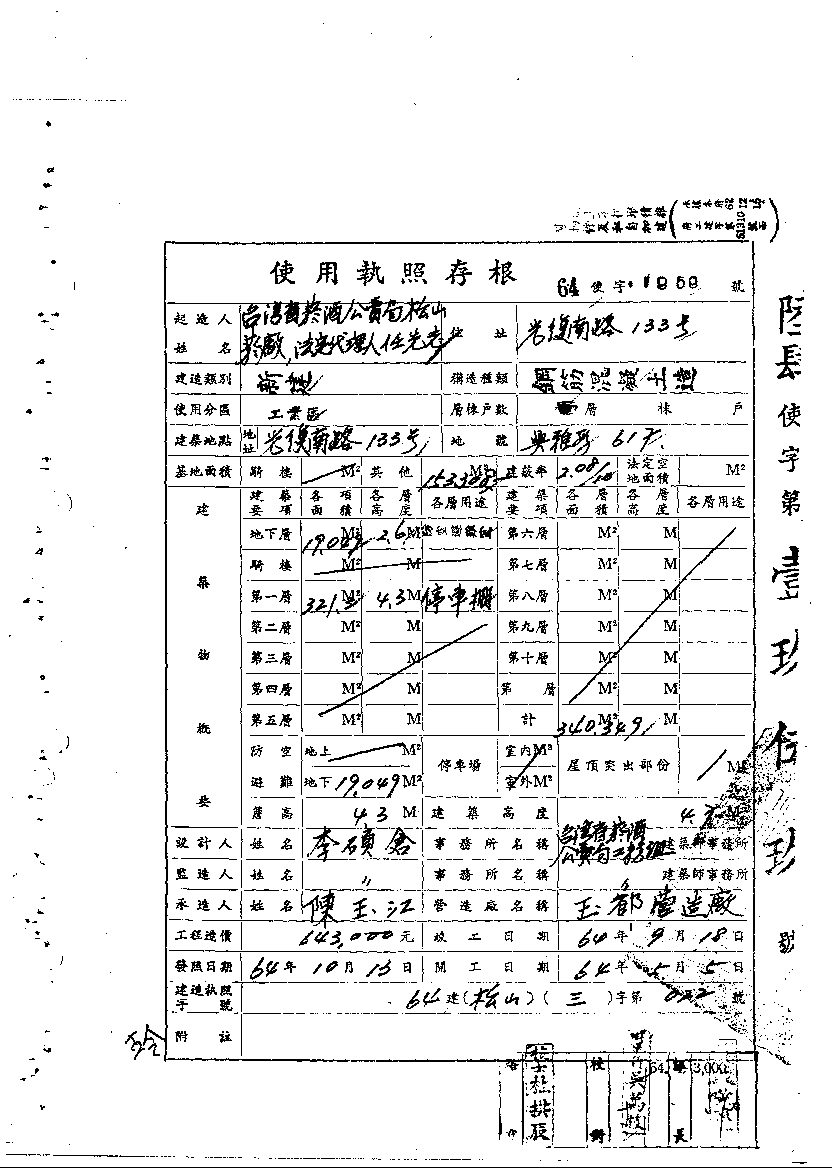 使用執照存根
64 使字第 1959 號
起造人姓名 台灣省菸酒公賣局松山菸廠,法定代理人任先志 住址 光復南路133号
建造類別 新建 構造種類 鋼筋混凝土造
使用分區 工業區 層棟戶數 層 棟 戶
建築地點 地址 光復南路133号 地號 興雅段617
基地面積 騎樓 M² 其他 M² 建蔽率 2.08/10 法定空地面積 M²
建築物概要
建築要項 各項面積 各層高度 各層用途 建築要項 各層面積 各層高度 各層用途
地下層 19.049 M² 2.6 M 第六層 M² M
騎樓 M² M 第七層 M² M
第一層 321.3 M² 4.3 M 停車棚 第八層 M² M
第二層 M² M 第九層 M² M
第三層 M² M 第十層 M² M
第四層 M² M 第 層 M² M
第五層 M² M 計 340.349 M² M
防空避難 地上 M² 停車場 室內M² 屋頂突出部份 M²
地下 19.049 M² 室外M²
簷高 4.3 M 建築高度 4.3 M
設計人 姓名 李碩倉 事務所名稱 台灣省菸酒公賣局工務組 建築師事務所
監造人 姓名 〃 事務所名稱 〃 建築師事務所
承造人 姓名 陳玉江 營造廠名稱 玉都營造廠
工程造價 643,000 元 竣工日期 64年9月18日
發照日期 64年10月13日 開工日期 64年5月5日
建造執照字號 64建(松山)(三)字第022號
附註
使字第壹玖伍玖號
校對
64. 3,000
長